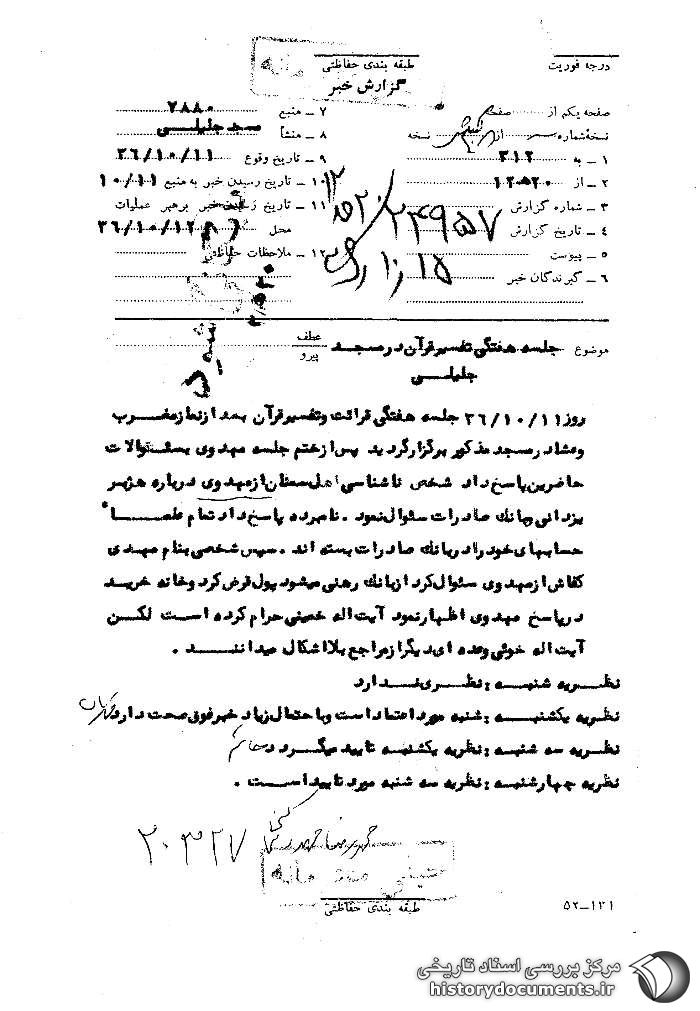 درجه فوریت
طبقه بندی حفاظتی
گزارش خبر
صفحه یکم از صفحه
نسخهٔ شماره از نسخه
۱ ــ به ۳۱۲
۲ ــ از ۲۰ه۱۲
۳ ــ شماره گزارش ۲۴۹۵۷
۴ ــ تاریخ گزارش
۵ ــ پیوست
۶ ــ گیرندگان خبر
۷ ــ منبع ۷۸۸۰
۸ ــ منشأ مسجد جلیلی
۹ ــ تاریخ وقوع ۳۶/۱۰/۱۱
۱۰ ــ تاریخ رسیدن خبر به منبع ۱۰/۱۱
۱۱ ــ تاریخ رسیدن خبر برهبر عملیات
محل ۳۶/۱۰/۱۲
۱۲ ــ ملاحظات حفاظتی
شنبه
موضوع جلسه هفتگی تفسیر قرآن در مسجد
جلیلی
عطف
پیرو
روز ۳۶/۱۰/۱۱ جلسه هفتگی قرائت و تفسیر قرآن بعد از نماز مغرب
و عشا در مسجد مذکور برگزار گردید پس از ختم جلسه مهدوی بسئوالات
حاضرین پاسخ داد شخص ناشناسی اهل سمنان از مهدوی درباره هژبر
یزدانی و بانك صادرات سئوال نمود . نامبرده پاسخ داد تمام علما
حسابهای خود را در بانك صادرات بسته اند . سپس شخصی بنام مهدی
کفاش از مهدوی سئوال کرد از بانك رهنی میشود پول قرض کرد و خانه خرید
در پاسخ مهدوی اظهار نمود آیت اله خمینی حرام کرده است لکن
آیت اله خوئی و عده ای دیگر از مراجع بلا اشکال میدانند .
نظریه شنبه : نظری ندارد
نظریه یکشنبه : شنبه مورد اعتماد است و با احتمال زیاد خبر فوق صحت دارد
نظریه سه شنبه : نظریه یکشنبه تایید میگردد
نظریه چهارشنبه : نظریه سه شنبه مورد تایید است .
۲۰۳۲۷
طبقه بندی حفاظتی
۵۲ــ۱۳۱
مرکز بررسی اسناد تاریخی
historydocuments.ir